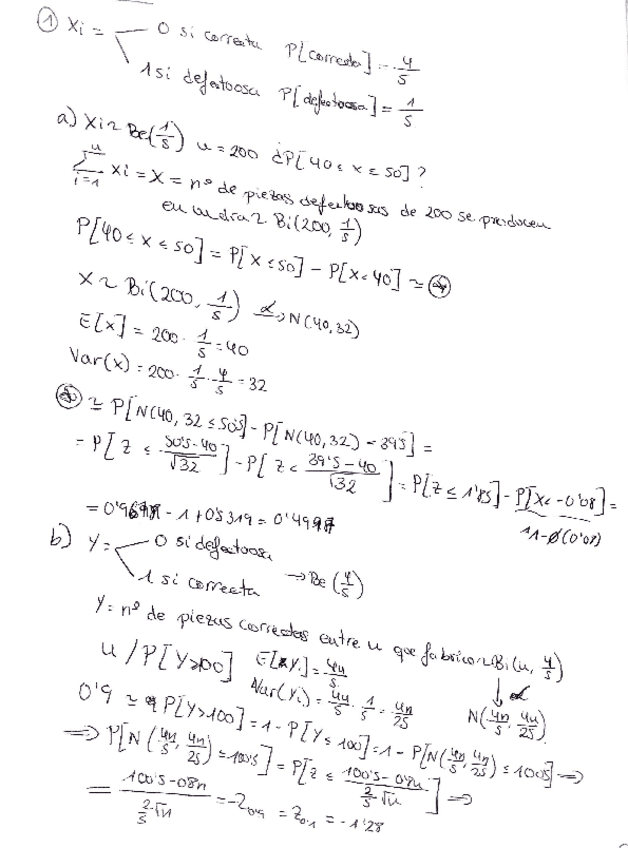 ① Xi = 0 si correcta P[correcta] = 4/5
1 si defectuosa P[defectuosa] = 1/5
a) Xi ~ Be(1/5) n = 200 ¿P[40 ≤ x ≤ 50]?
∑ i=1 n Xi = X = nº de piezas defectuosas de 200 se producen
en un día ~ Bi(200, 1/5)
P[40 ≤ x ≤ 50] = P[x ≤ 50] - P[x < 40] ≃ ⊛
X ~ Bi(200, 1/5) → N(40, 32)
E[x] = 200 · 1/5 = 40
Var(x) = 200 · 1/5 · 4/5 = 32
⊛ ≃ P[N(40, 32 ≤ 50'5] - P[N(40, 32) - 39'5] =
= P[Z ≤ 50'5 - 40 / √32] - P[Z < 39'5 - 40 / √32] = P[Z ≤ 1'85] - P[X < -0'08] =
1-ø(0'08)
= 0'9678 - 1 + 0'5319 = 0'4997
b) Y = 0 si defectuosa
1 si correcta → Be(4/5)
Y = nº de piezas correctas entre n que fabrico ~ Bi(n, 4/5)
n / P[Y>100] E[Yi] = 4n/5
Var(Yi) = 4n/5 · 1/5 = 4n/25 N(4n/5, 4n/25)
0'9 ≃ P[Y>100] = 1 - P[Y ≤ 100] = 1 - P[N(4n/5, 4n/25) ≤ 100'5] ⟹
⟹ P[N(4n/5, 4n/25) ≤ 100'5] = P[Z ≤ 100'5 - 0'8n / 2/5 √n] ⟹
= 100'5 - 0'8n / 2/5 √n = -Z0'9 = Z0'1 = -1'28